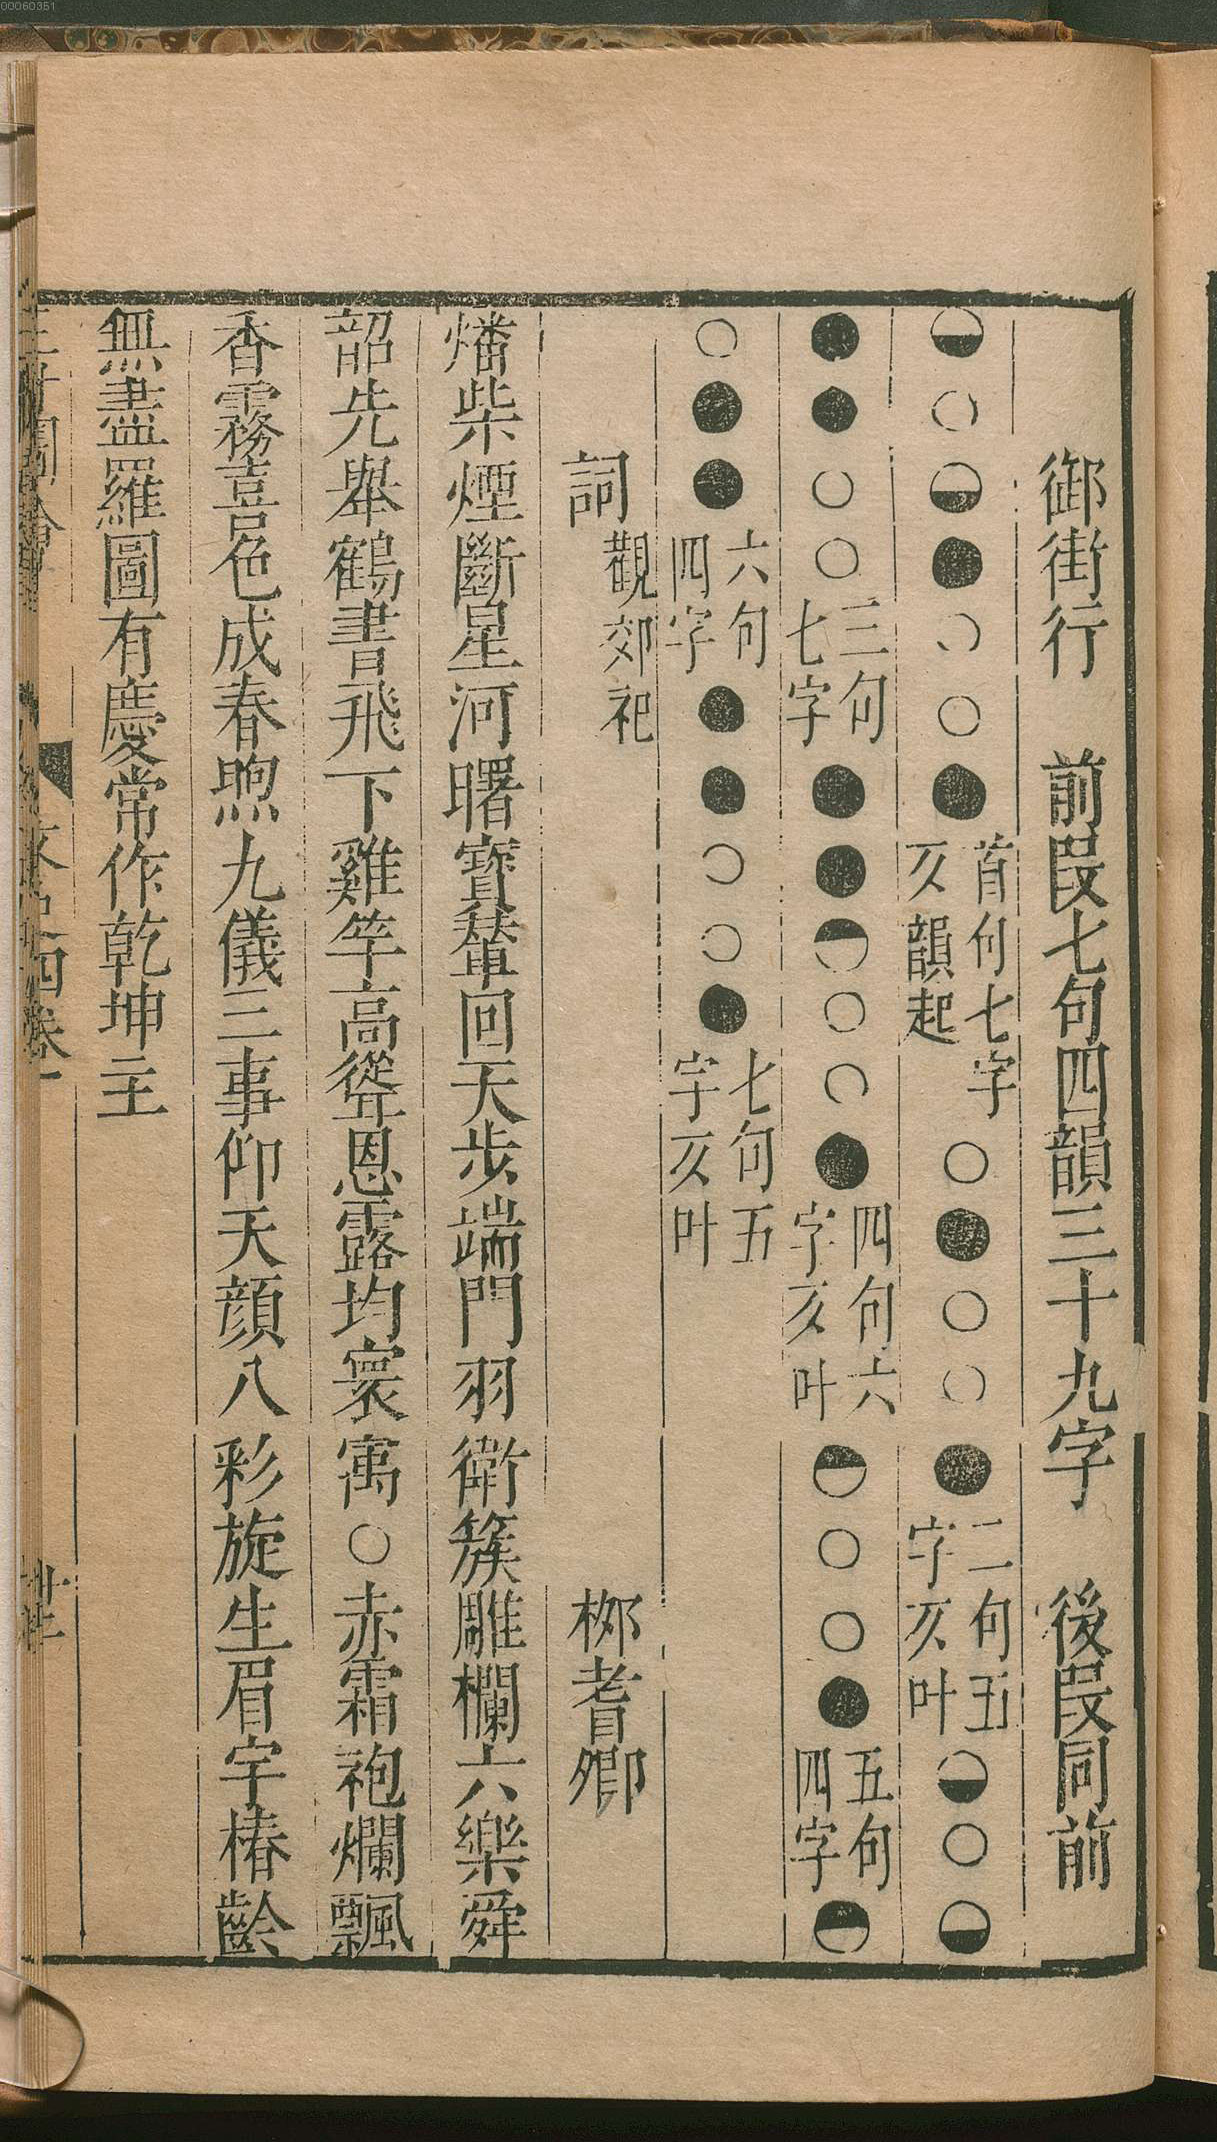 00060351
御街行　前段七句四韻三十九字　後段同前
◒○◒●○○●首句七字仄韻起○●○○●二句五字仄叶◒○◒
●●○○三句七字●●◓○○●四句六字仄叶◓○○●五句四字◓
○●●六句四字●●○○●七句五字仄叶
詞觀郊祀　柳耆卿
燔柴煙斷星河曙寶輦回天步端門羽衛簇雕欄六樂舜
韶先舉鶴書飛下雞竿高聳恩露均寰寓○赤霜袍爛飄
香霧喜色成春煦九儀三事仰天顏八彩旋生眉宇椿齡
無盡羅圖有慶常作乾坤主
文史四卷